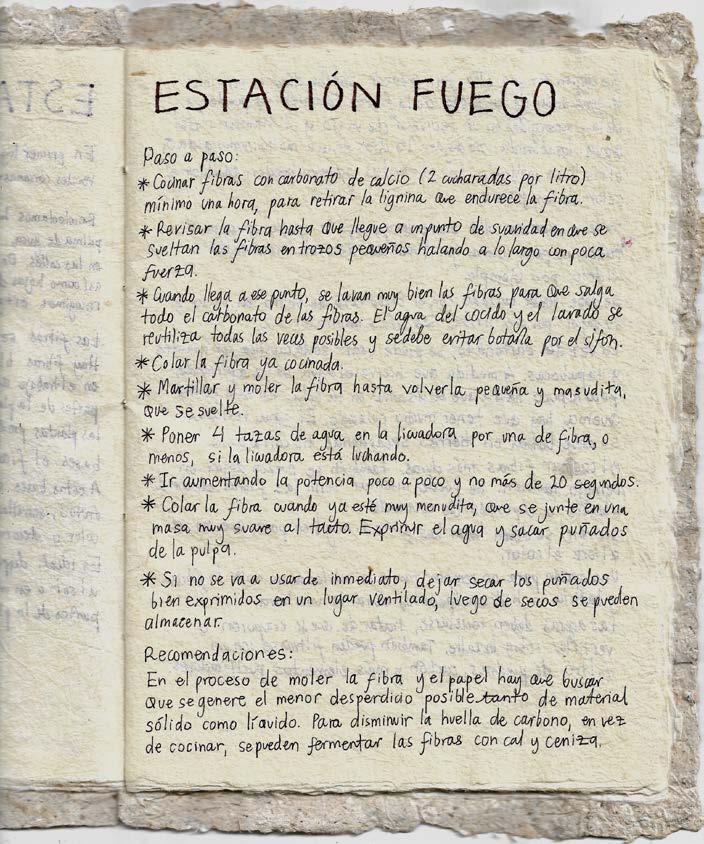 ESTACIÓN FUEGO
Paso a paso:
* Cocinar fibras con carbonato de calcio (2 cucharadas por litro)
mínimo una hora, para retirar la lignina que endurece la fibra.
* Revisar la fibra hasta que llegue a un punto de suavidad en que se
sueltan las fibras en trozos pequeños halando a lo largo con poca
fuerza.
* Cuando llega a ese punto, se lavan muy bien las fibras para que salga
todo el carbonato de las fibras. El agua del cocido y el lavado se
reutiliza todas las veces posibles y se debe evitar botarla por el sifón.
* Colar la fibra ya cocinada.
* Martillar y moler la fibra hasta volverla pequeña y masudita,
que se suelte.
* Poner 4 tazas de agua en la licuadora por una de fibra, o
menos, si la licuadora está luchando.
* Ir aumentando la potencia poco a poco y no más de 20 segundos.
* Colar la fibra cuando ya esté muy menudita, que se junte en una
masa muy suave al tacto. Exprimir el agua y sacar puñados
de la pulpa.
* Si no se va a usar de inmediato, dejar secar los puñados
bien exprimidos en un lugar ventilado, luego de secos se pueden
almacenar.
Recomendaciones:
En el proceso de moler la fibra y el papel hay que buscar
que se genere el menor desperdicio posible tanto de material
sólido como líquido. Para disminuir la huella de carbono, en vez
de cocinar, se pueden fermentar las fibras con cal y ceniza.